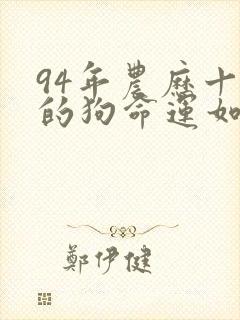 94年農歷十
的狗命運如
鄭伊健